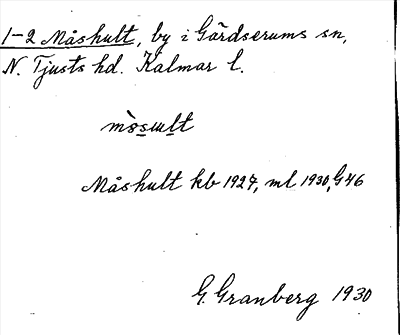 1-2 Måshult, by i Gärdserums sn,
N. Tjusts hd. Kalmar l.
Måshult kb 1927, ml 1930, G46
G. Granberg 1930